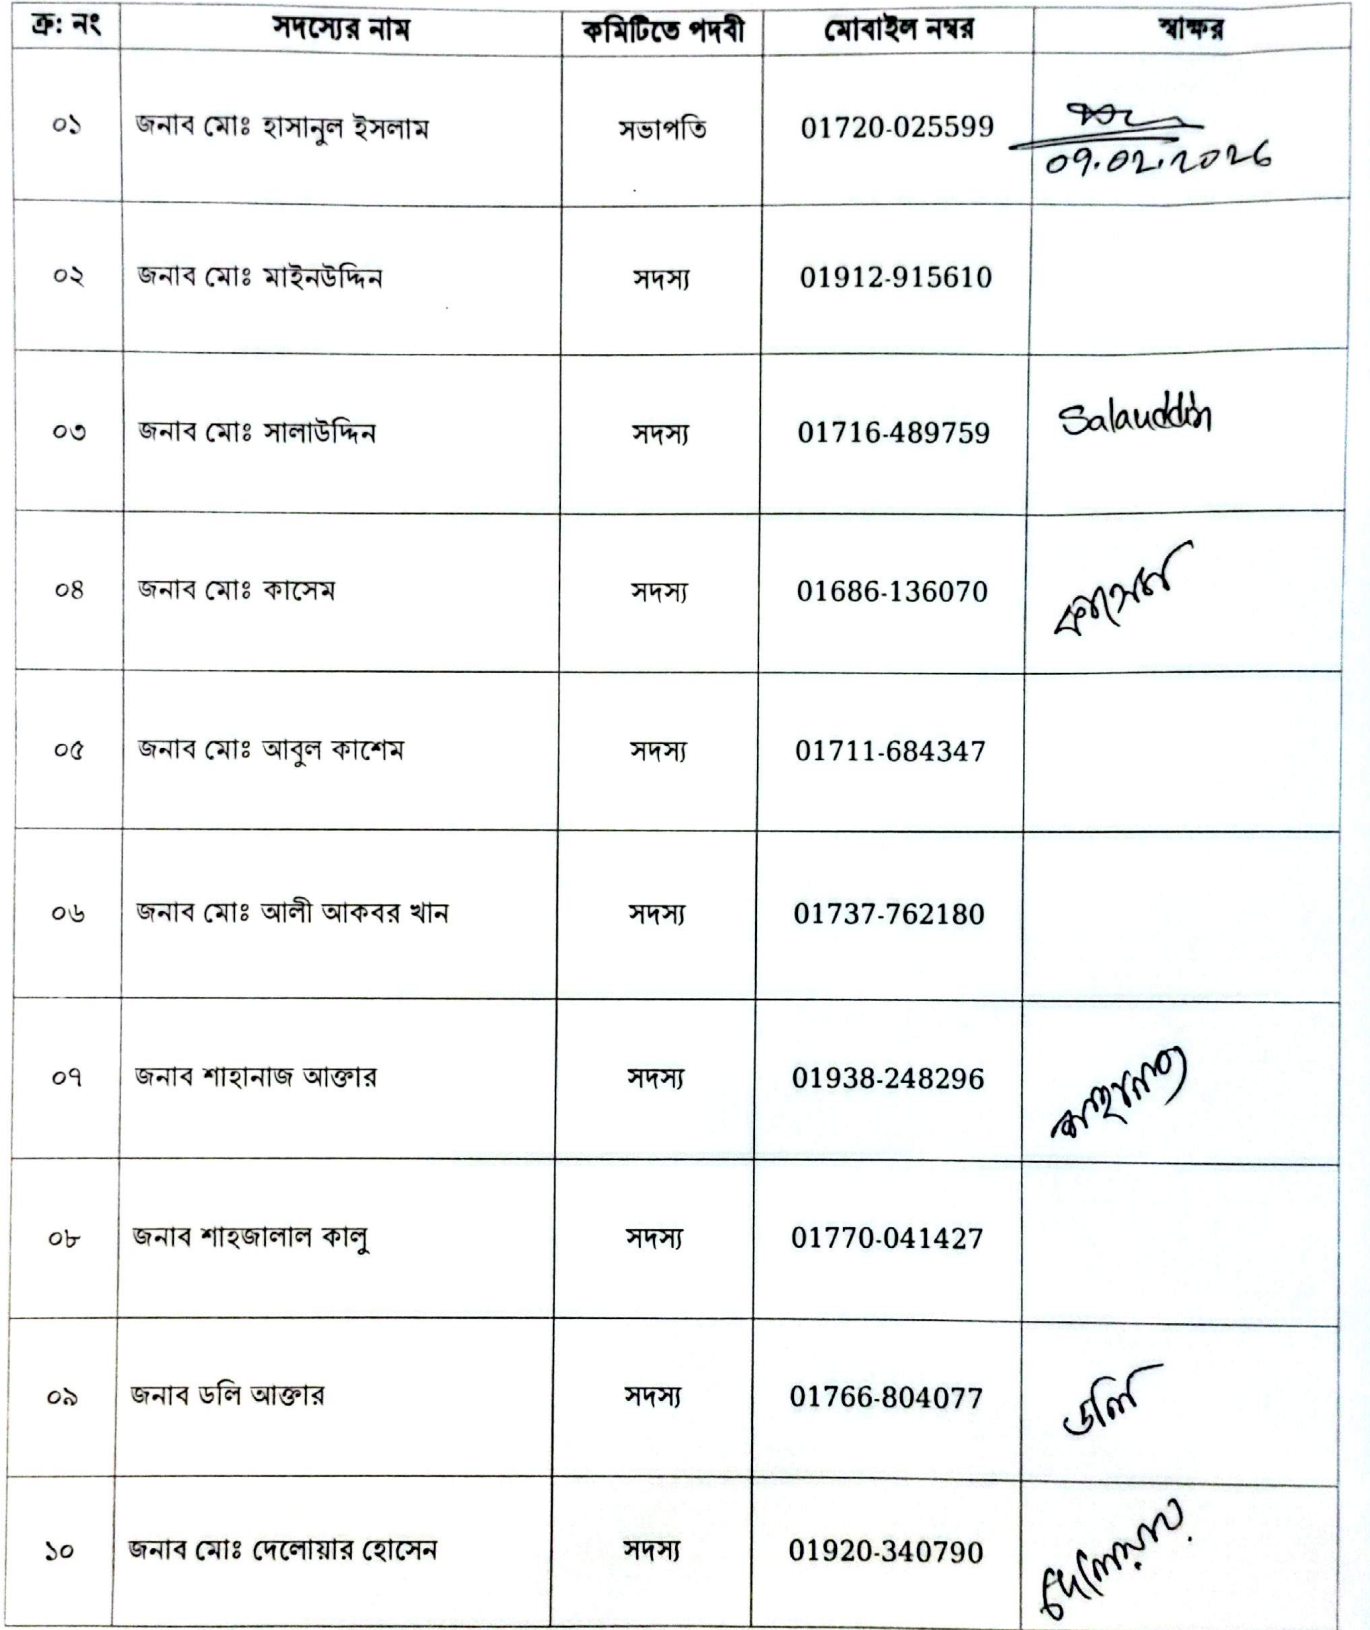 ক্র: নং সদস্যের নাম কমিটিতে পদবী মোবাইল নম্বর স্বাক্ষর
০১ জনাব মোঃ হাসানুল ইসলাম সভাপতি 01720-025599
09.02.2026
০২ জনাব মোঃ মাইনউদ্দিন সদস্য 01912-915610
০৩ জনাব মোঃ সালাউদ্দিন সদস্য 01716-489759 Salauddin
০৪ জনাব মোঃ কাসেম সদস্য 01686-136070 কাসেম
০৫ জনাব মোঃ আবুল কাশেম সদস্য 01711-684347
০৬ জনাব মোঃ আলী আকবর খান সদস্য 01737-762180
০৭ জনাব শাহানাজ আক্তার সদস্য 01938-248296
০৮ জনাব শাহজালাল কালু সদস্য 01770-041427
০৯ জনাব ডলি আক্তার সদস্য 01766-804077 ডলি
১০ জনাব মোঃ দেলোয়ার হোসেন সদস্য 01920-340790 দেলোয়ার